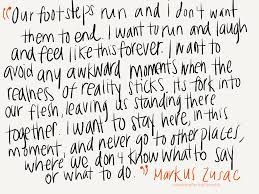 "Our footsteps run and I don't want
them to end. I want to run and laugh
and feel like this forever. I want to
avoid any awkward moments when the
realness of reality sticks its fork into
our flesh, leaving us standing there
together. I want to stay here, in this
moment, and never go to other places,
where we don't know what to say
or what to do."
Markus Zusac